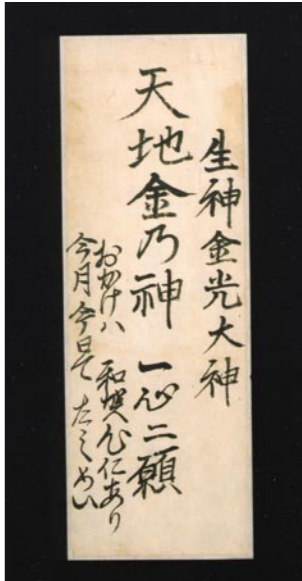 生神金光大神
天地金乃神 一心ニ願
おかけハ 和賀心にあり
今月今日て たのめい